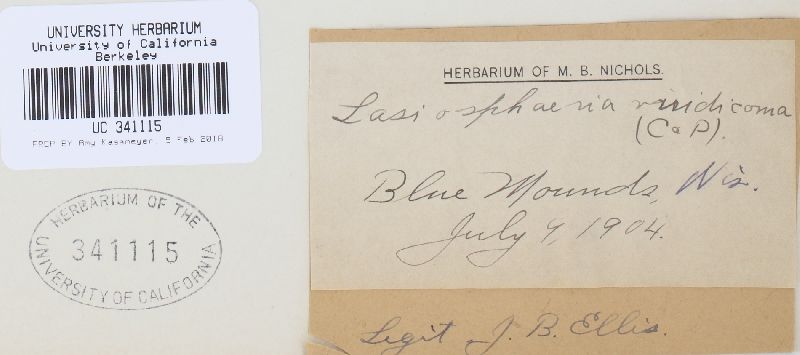 UNIVERSITY HERBARIUM
University of California
Berkeley
UC 341115
PREP BY Amy Kasameyer, 5 Feb 2018
HERBARIUM OF THE
341115
UNIVERSITY OF CALIFORNIA
HERBARIUM OF M. B. NICHOLS.
Lasiosphaeria viridicoma
(C & P).
Blue Mounds, Wis.
July 9, 1904.
Legit J. B. Ellis.